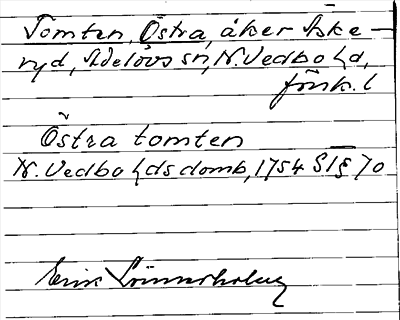 Tomten, Östra, åker Aske-
ryd, Adelövs sn, N. Vedbo hd,
Jönk. l
Östra tomten
N. Vedbo hds domb, 1754 § 70
Erik Linnerholm